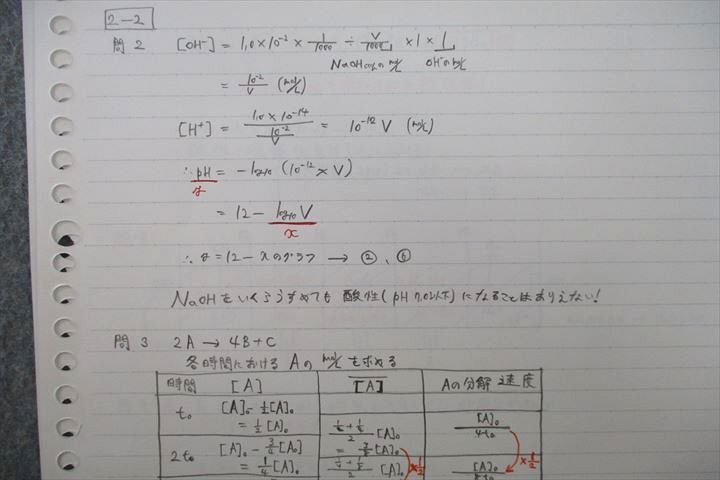 2-2
問2 [OH⁻] = 1.0×10⁻² × 1/1000 ÷ V/1000 ×1×1
NaOHaqのmol/L OH⁻のmol/L
= 10⁻²/V (mol/L)
[H⁺] = 1.0×10⁻¹⁴/(10⁻²/V) = 10⁻¹²V (mol/L)
∴ pH = -log₁₀(10⁻¹²×V)
y
= 12 - log₁₀V
x
∴ y = 12 - x のグラフ → ②、⑥
NaOHをいくらうすめても 酸性(pH 7.0以下)になることはありえない!
問3 2A → 4B+C
各時間におけるAのmol/Lを求める
時間 [A] [A] Aの分解速度
t₀ [A]₀-½[A]₀
= ½[A]₀
[A]₀
[A]₀/4t₀
2t₀ [A]₀-¾[A₀]
= ¼[A]₀
[A]₀
×½
[A]₀
×½
[A]₀